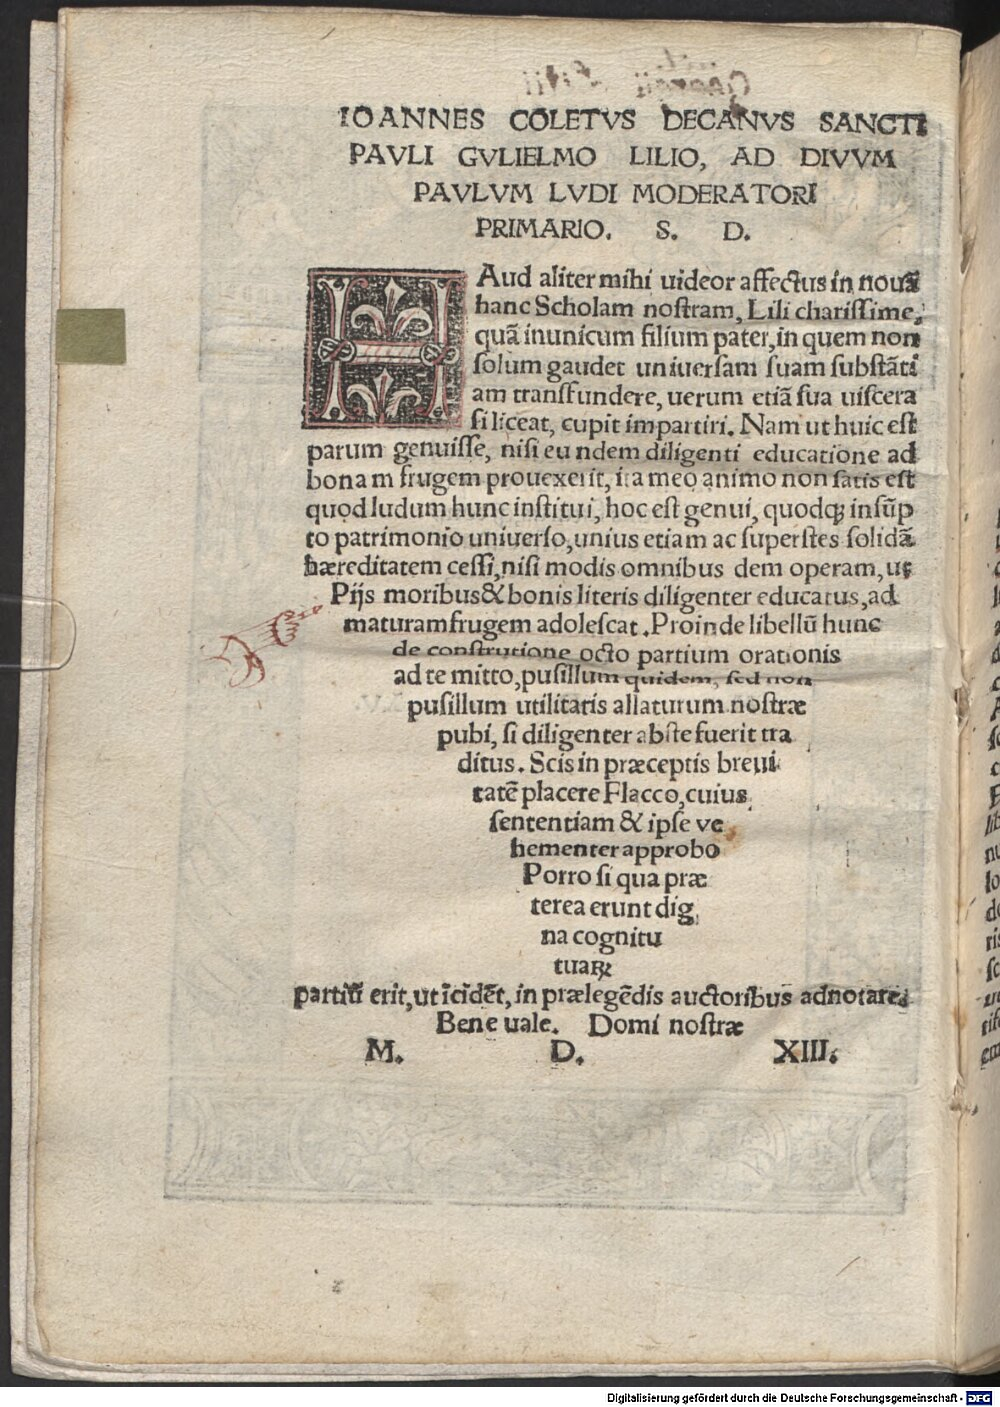 IOANNES COLETVS DECANVS SANCTI
PAVLI GVLIELMO LILIO, AD DIVVM
PAVLVM LVDI MODERATORI
PRIMARIO. S. D.
HAud aliter mihi uideor affectus in nouā
hanc Scholam nostram, Lili charissime,
quā inunicum filium pater, in quem non
solum gaudet uniuersam suam substāti
am transfundere, uerum etiā sua uiscera
si liceat, cupit impartiri. Nam ut huic est
parum genuisse, nisi eundem diligenti educatione ad
bonam frugem prouexerit, ita meo animo non satis est
quod ludum hunc institui, hoc est genui, quodq; insūp
to patrimonio uniuerso, unius etiam ac superstes solidā
hæreditatem cessi, nisi modis omnibus dem operam, ut
Pijs moribus & bonis literis diligenter educatus, ad
maturam frugem adolescat. Proinde libellū hunc
de construtione octo partium orationis
ad te mitto, pusillum quidem, sed non
pusillum utilitatis allaturum nostræ
pubi, si diligenter abste fuerit tra
ditus. Scis in præceptis breui
tatē placere Flacco, cuius
sententiam & ipse ve
hementer approbo
Porro si qua præ
terea erunt dig
na cognitu
tuaꝝ
partiū erit, ut īcidēt, in prælegēdis auctoribus adnotare.
Bene uale. Domi nostræ
M. D. XIII.
Digitalisierung gefördert durch die Deutsche Forschungsgemeinschaft - DFG